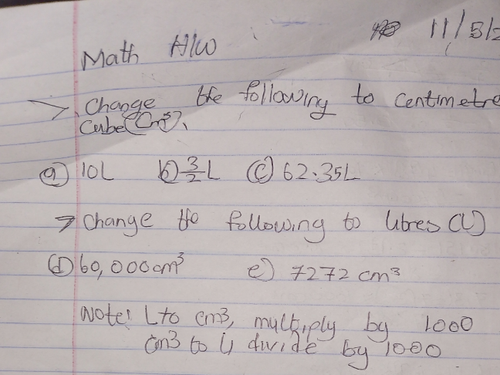 11/5/2
Math H/W
Change the following to centimetre
Cube(Cm³).
a) 10L b) 3/2 L c) 62.35L
Change the following to litres (L)
d) 60,000cm³ e) 7272 cm³
Note: L to cm³, multiply by 1000
cm³ to L, divide by 1000